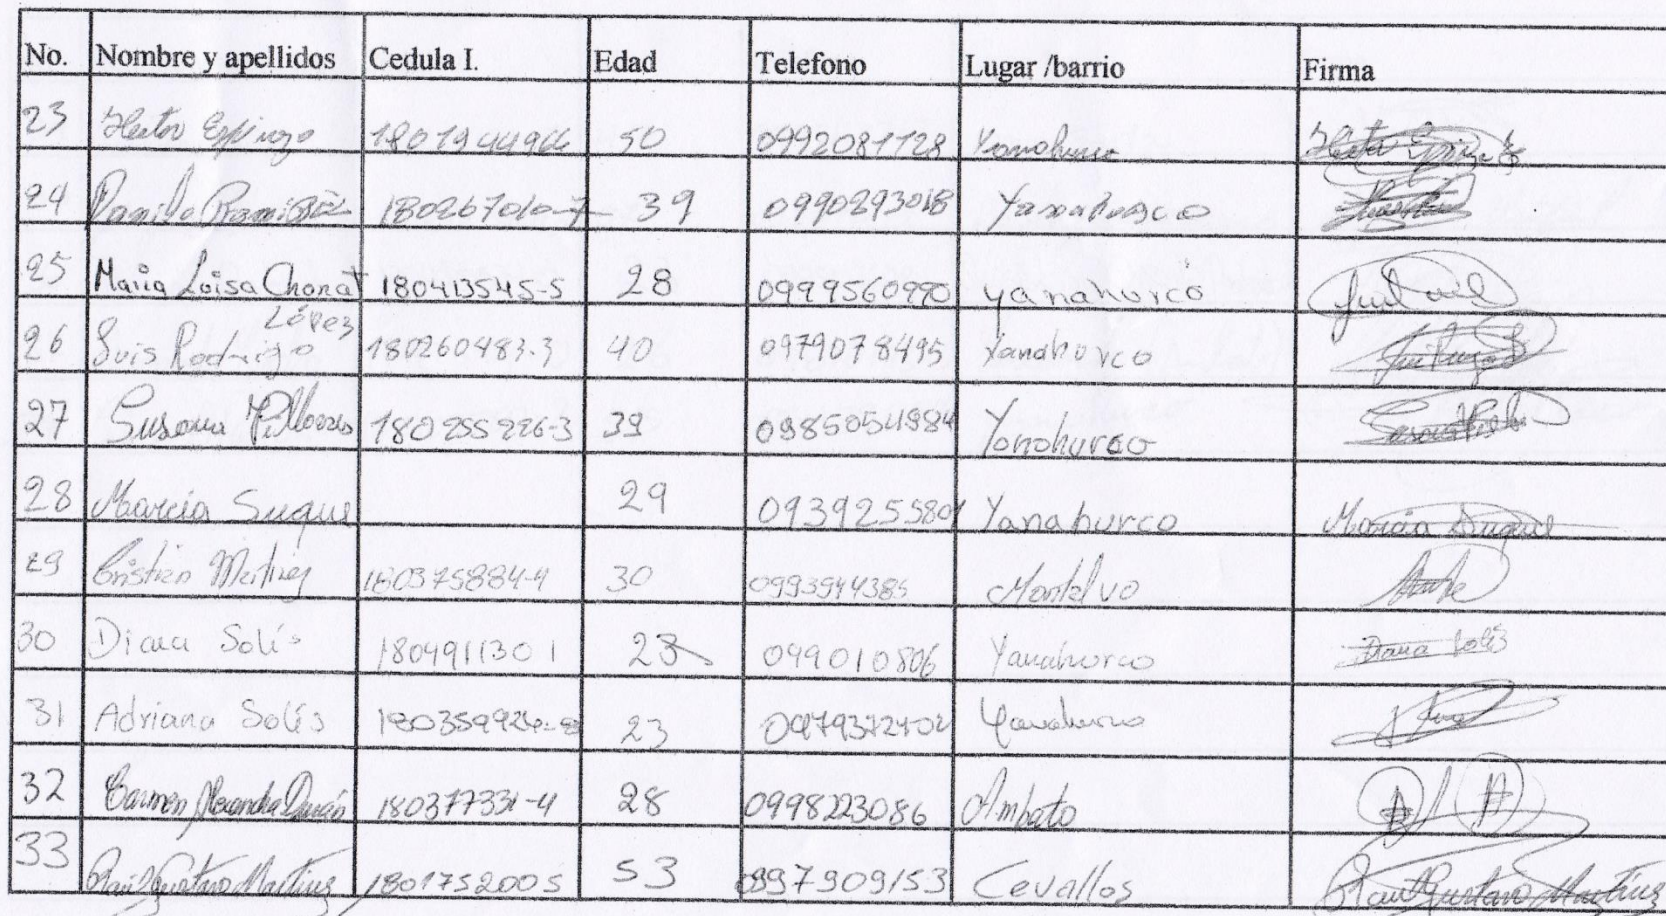 No. Nombre y apellidos Cedula I. Edad Telefono Lugar /barrio Firma
23 Hector Espinoza 1801944964 50 0992081728 Yanahurco Hector Espinoza
24 Danilo Ramirez 180267010-7 39 0990293018 Yanahurco
25 Maria Loisa Chonat 180413545-5 28 0999560990 yanahurco
López
26 Luis Rodrigo 180260483-3 40 0979078495 Yanahurco
27 Susana 180255226-3 39 0985054984 Yanahurco
28 Marcia Suque 29 0939255801 Yanahurco Marcia Suque
29 Cristian Martinez 180375884-4 30 0993944385 Montalvo
30 Diana Solís 1804911301 23 099010806 Yanahurco Diana Solís
31 Adriana Solís 180359924-8 23 Yanahurco
32 Carmen Alexandra Durán 180377331-4 28 0998223086 Ambato
33 Raul Gustavo Martinez 1801752005 53 0897909153 Cevallos Raul Gustavo Martinez